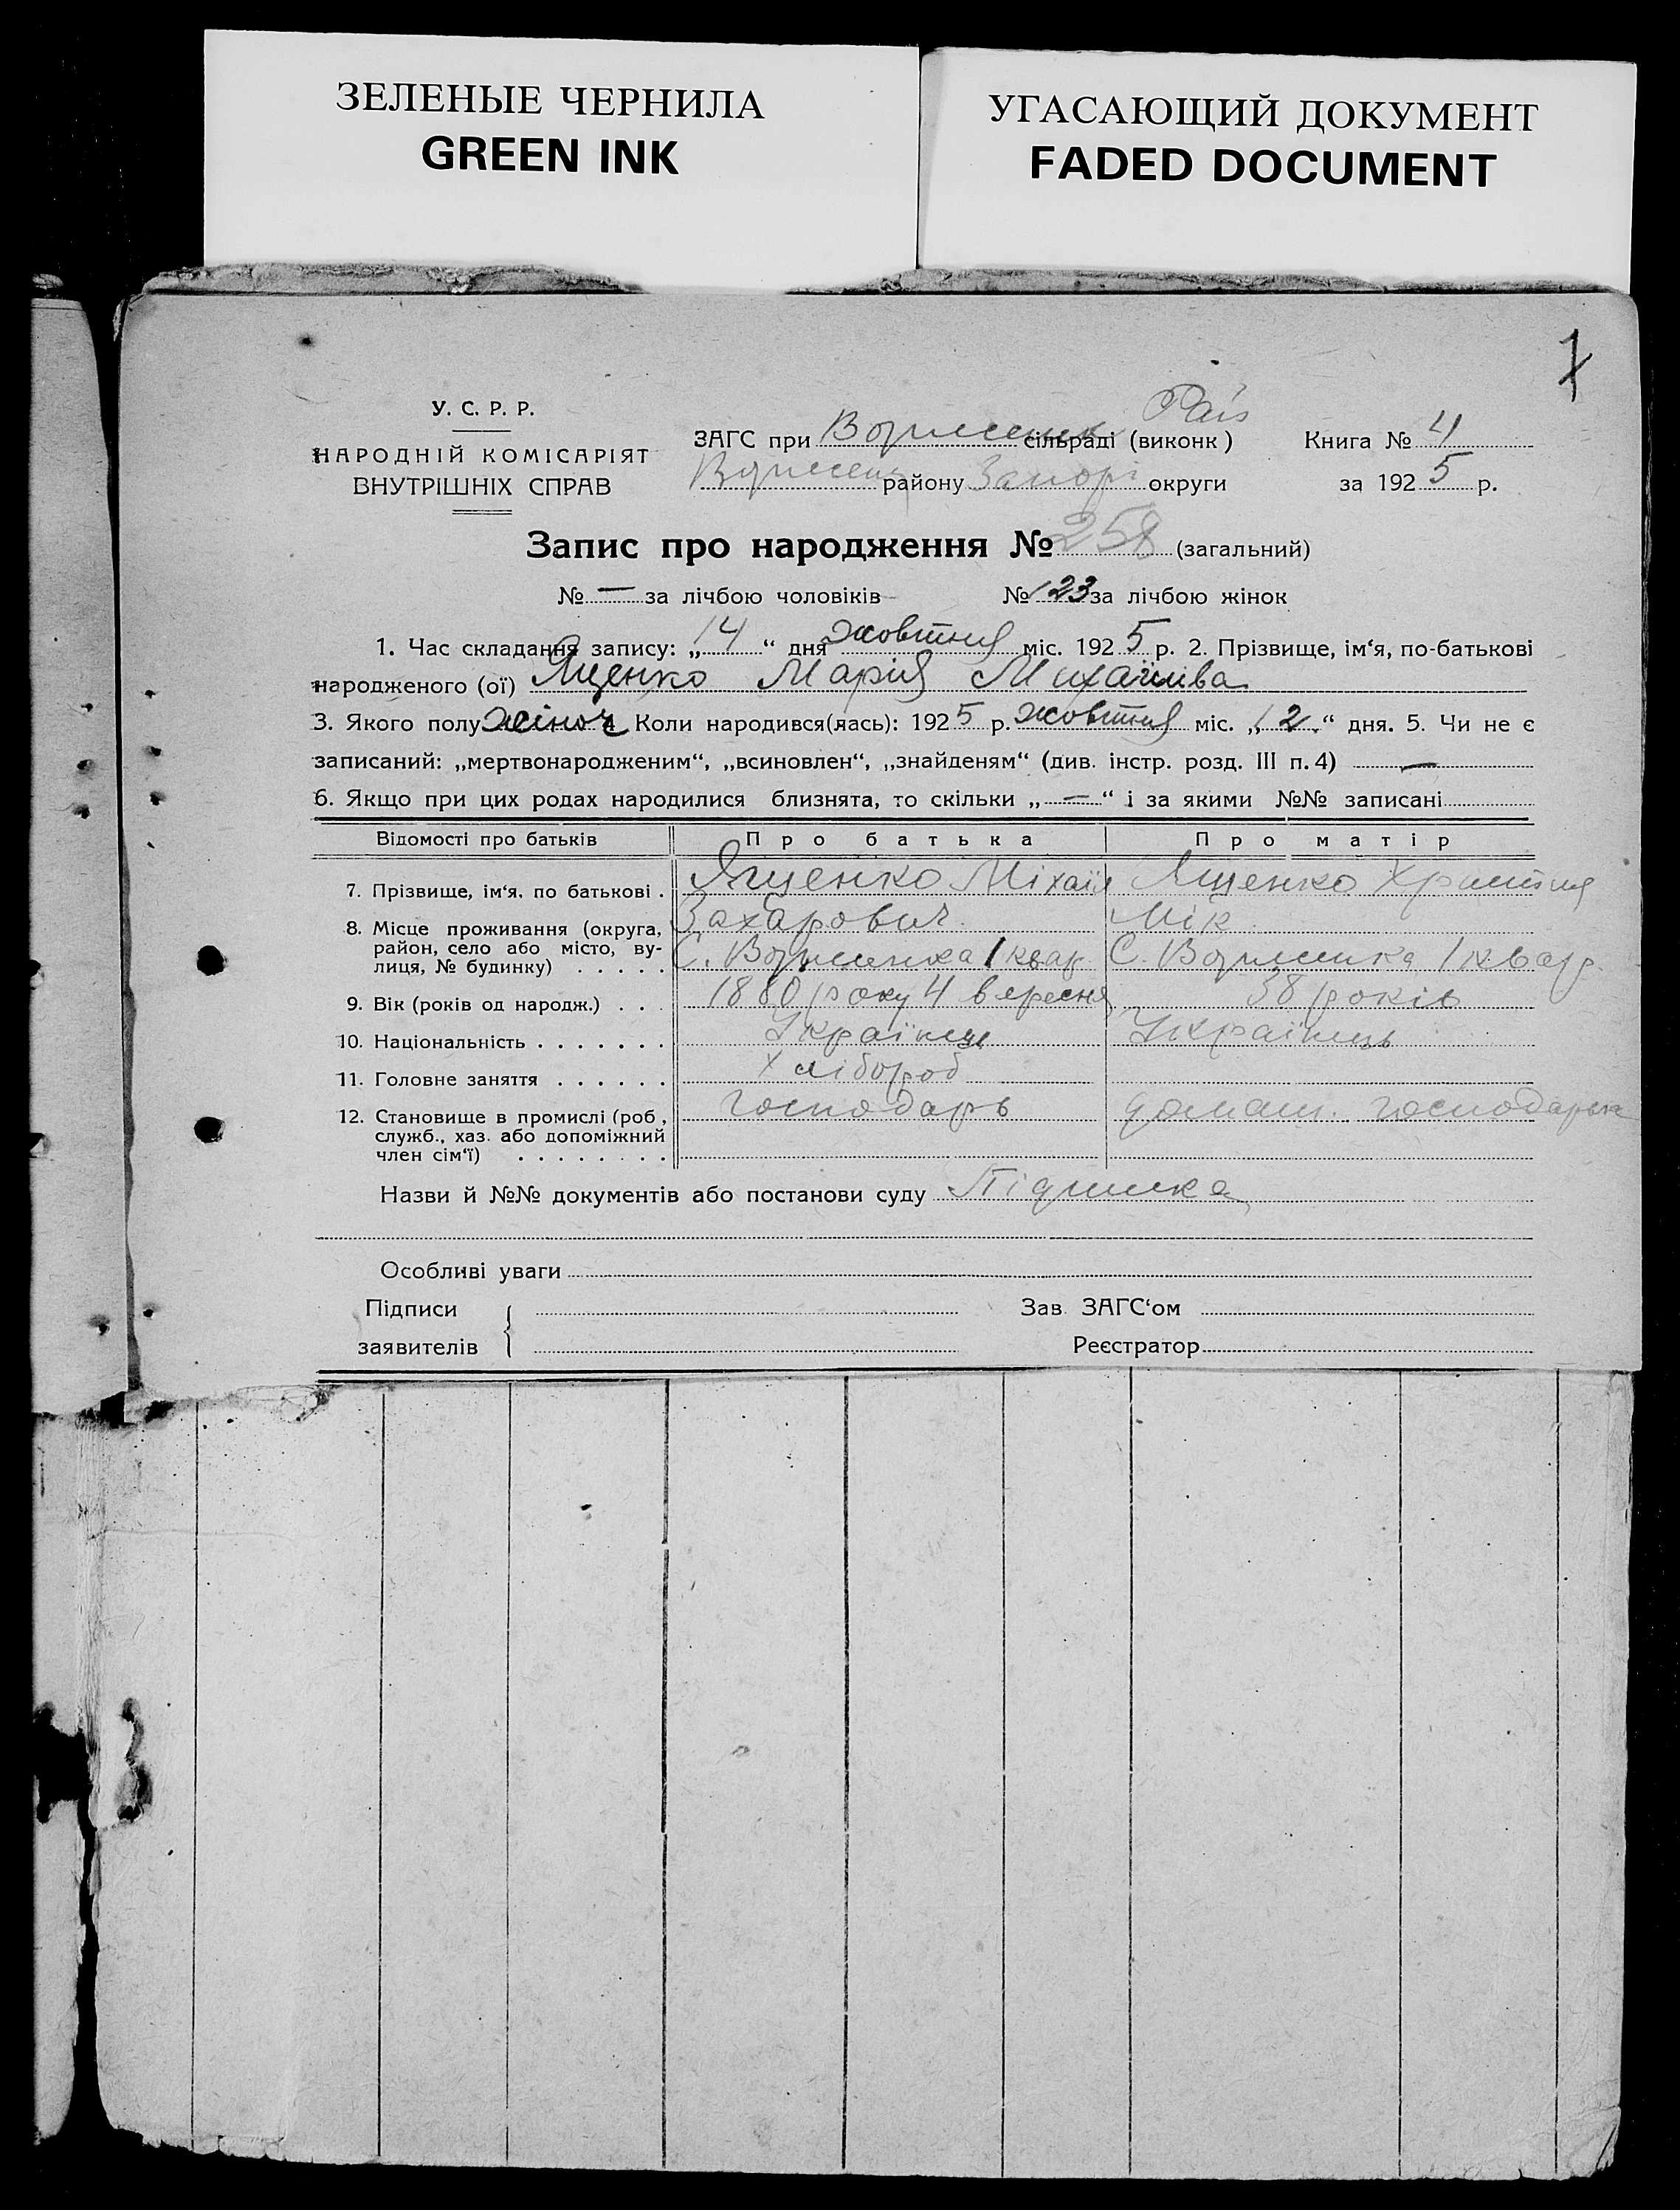 ЗЕЛЕНЫЕ ЧЕРНИЛА
GREEN INK
УГАСАЮЩИЙ ДОКУМЕНТ
FADED DOCUMENT
7
У. С. Р. Р.
НАРОДНІЙ КОМІСАРІЯТ
ВНУТРІШНІХ СПРАВ
Рай
ЗАГС при сільраді (виконк)
району Запорі округи
Книга № 4
за 1925 р.
Запис про народження № 258 (загальний)
№ — за лічбою чоловіків № 123 за лічбою жінок
1. Час складання запису: „14“ дня жовтня міс. 1925 р. 2. Прізвище, ім‘я, по-батькові
народженого (ої) Яценко Марія Михайлівa
3. Якого полу жіноч 4 Коли народився(лась): 1925 р. жовтня міс. „12“ дня. 5. Чи не є
записаний: „мертвонародженим“, „всиновлен“, „знайденям“ (див. інстр. розд. III п. 4) —
6. Якщо при цих родах народилися близнята, то скільки „—“ і за якими №№ записані
Відомості про батьків Про батька Про матір
7. Прізвище, ім‘я, по батькові . Яценко Міхаіл Яценко Христия
8. Місце проживання (округа, Захарович Мік
район, село або місто, ву- С. 1 квар С. 1 квар
лиця, № будинку) . . . . .
9. Вік (років од народж.) . . . 1880 року 4 вересня 38 років
10. Національність . . . . . . . Українць Українць
11. Головне заняття . . . . . . Хлібороб
12. Становище в промислі (роб, господарь домаш. господарка
служб., хаз. або допоміжний
член сім‘ї) . . . . . . . .
Назви й №№ документів або постанови суду
Особливі уваги
Підписи Зав. ЗАГС‘ом
заявителів Реєстратор